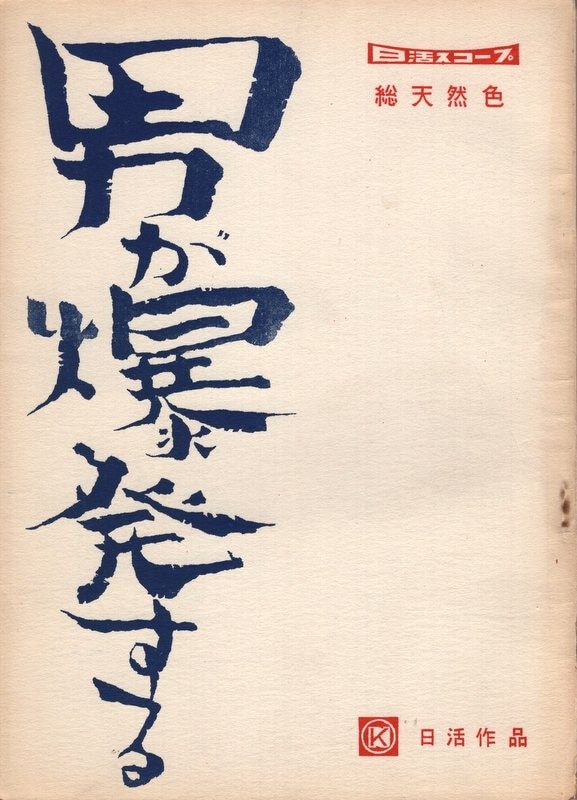 日活スコープ
総天然色
男が爆発する
K
日活作品